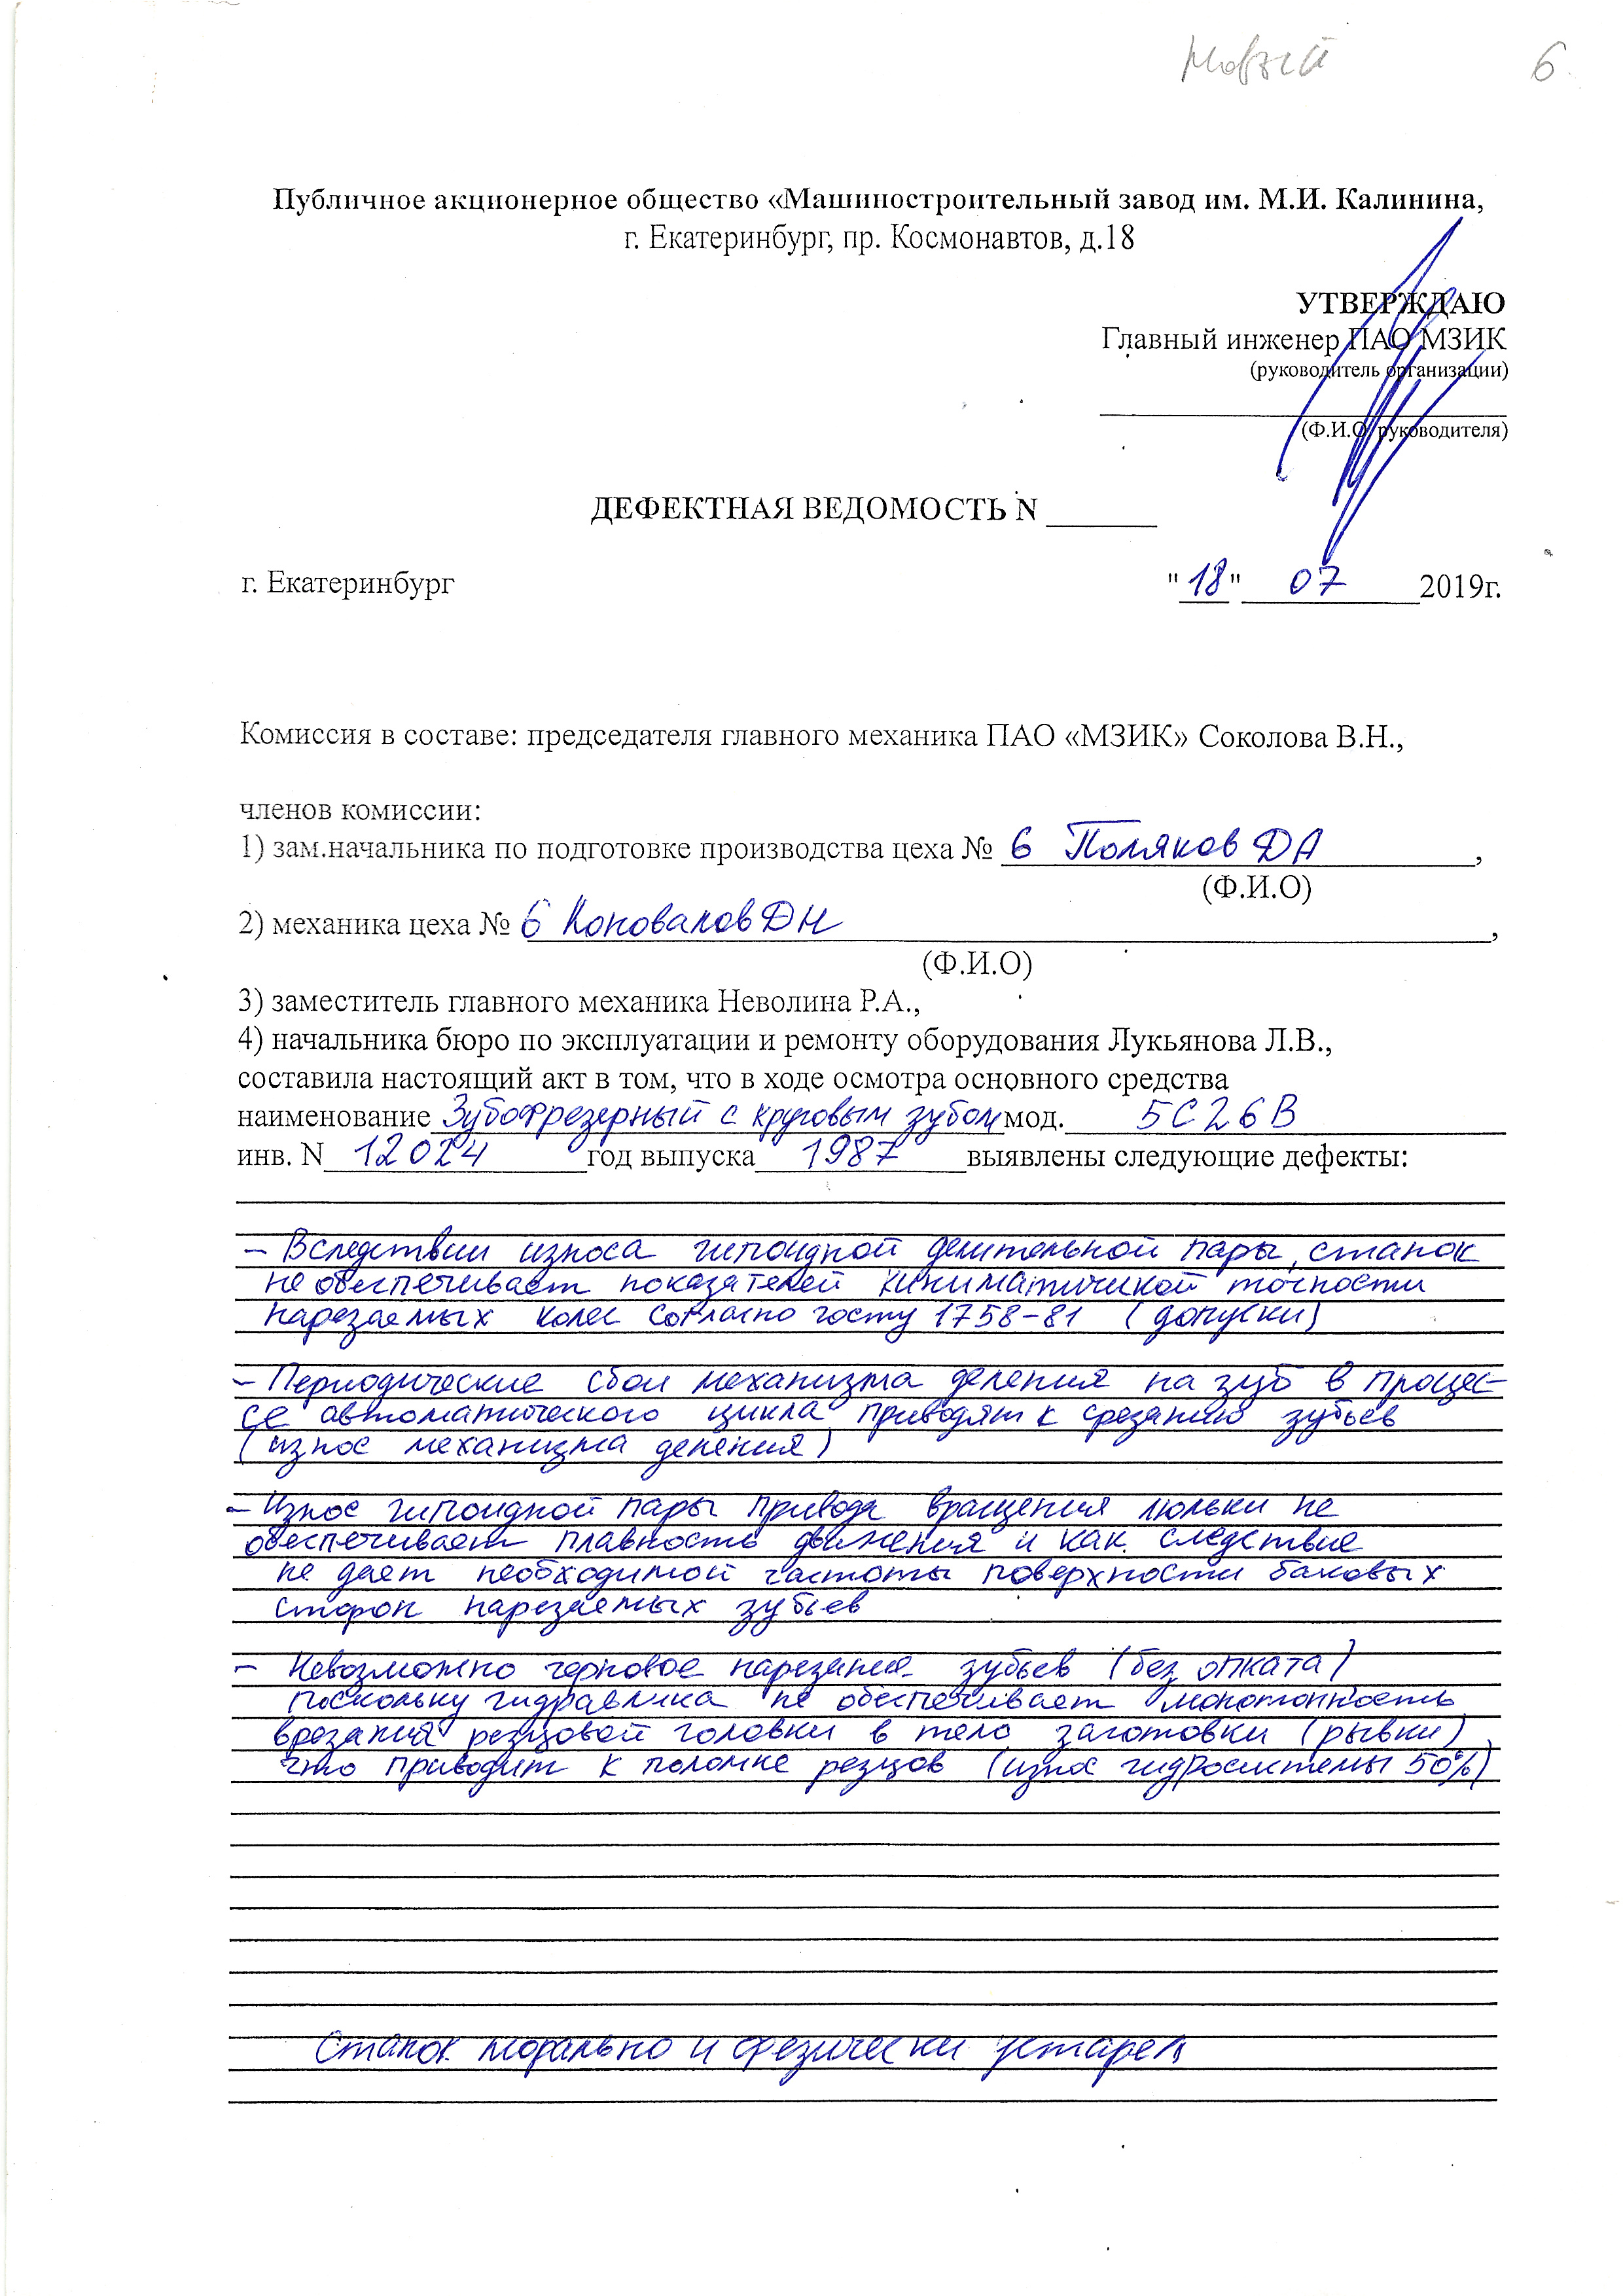 Новый 6
Публичное акционерное общество «Машиностроительный завод им. М.И. Калинина,
г. Екатеринбург, пр. Космонавтов, д.18
УТВЕРЖДАЮ
Главный инженер ПАО МЗИК
(руководитель организации)
(Ф.И.О. руководителя)
ДЕФЕКТНАЯ ВЕДОМОСТЬ N
г. Екатеринбург "18" 07 2019г.
Комиссия в составе: председателя главного механика ПАО «МЗИК» Соколова В.Н.,
членов комиссии:
1) зам.начальника по подготовке производства цеха № 6 Поляков ДА,
(Ф.И.О)
2) механика цеха № 6 Коновалов ДН,
(Ф.И.О)
3) заместитель главного механика Неволина Р.А.,
4) начальника бюро по эксплуатации и ремонту оборудования Лукьянова Л.В.,
составила настоящий акт в том, что в ходе осмотра основного средства
наименование Зубофрезерный с круговым зубом мод. 5С26В
инв. N 12024 год выпуска 1987 выявлены следующие дефекты:
– Вследствии износа гипоидной делительной пары, станок
не обеспечивает показателей киниматической точности
нарезаемых колес согласно госту 1758-81 (допуски)
– Периодические сбои механизма деления на зуб в процес-
се автоматического цикла приводят к срезанию зубьев
(износ механизма деления)
– Износ гипоидной пары привода вращения люльки не
обеспечивает плавность движения и как следствие
не дает необходимой чистоты поверхности баковых
сторон нарезаемых зубьев
– Невозможно черновое нарезание зубьев (без отката)
поскольку гидравлика не обеспечивает монотонность
врезания резцовой головки в тело заготовки (рывки)
что приводит к поломке резцов (износ гидросистемы 50%)
Станок морально и физически устарел